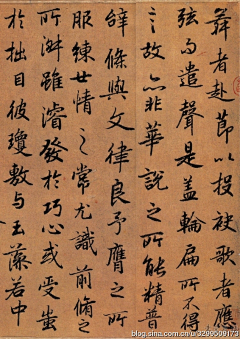 舞者赴節以投袂歌者應
弦而遣聲是蓋輪扁所不得
言故亦非華說之所能精普
辭條與文律良予膺之所
服練世情之常尤識前脩之
所淑雖濬發於巧心或受蚩
於拙目彼瓊敷與玉藻若中
blog.sina.com.cn/u/3299509173